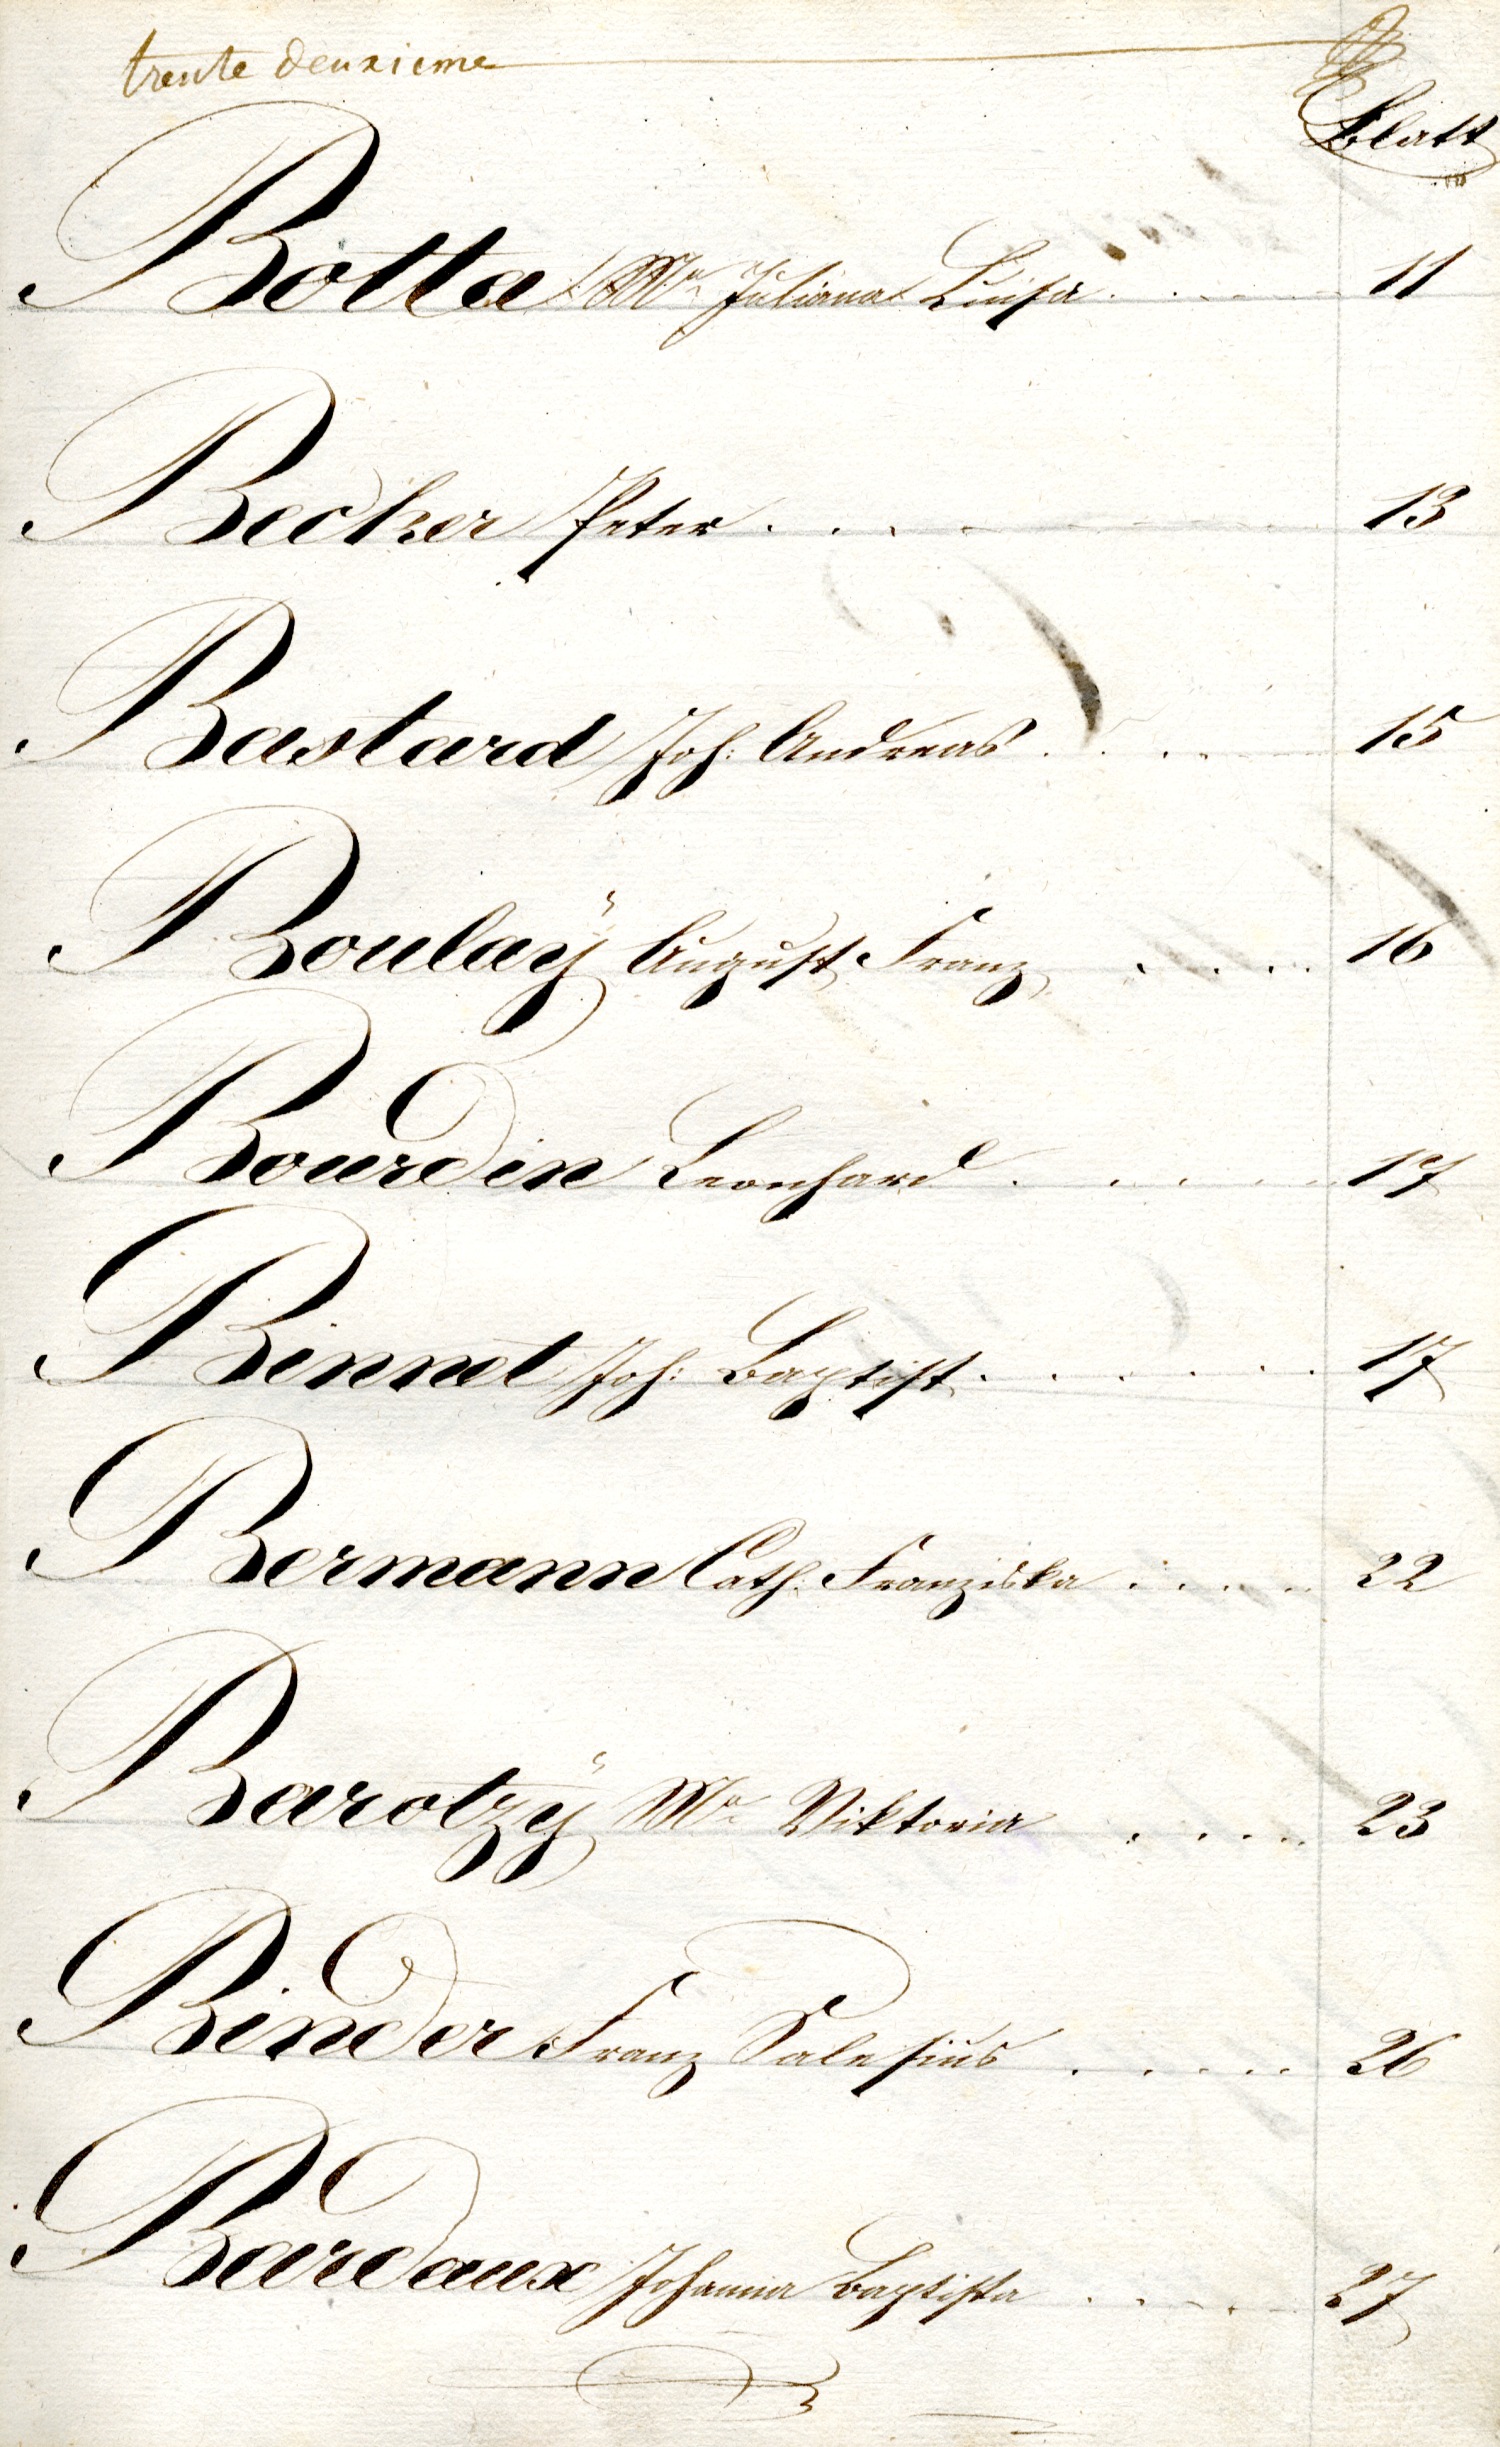 trente deuxieme
Blatt
Botta Mra Juliana Luisa . . . . . 11
Becker Peter . . . . . 13
Bastard Joh: Andreas . . . . . 15
Boulaÿ August Franz . . . . 16
Bourdin Leonhard . . . . . 17
Binnet Joh: Baptist . . . . . . 17
Bermann Cath: Franziska . . . . . 22
Barotzÿ Mra Viktoria . . . . . 23
Binder Franz Salesius . . . . . 26
Bardaux Johanna Baptista . . . . . 27